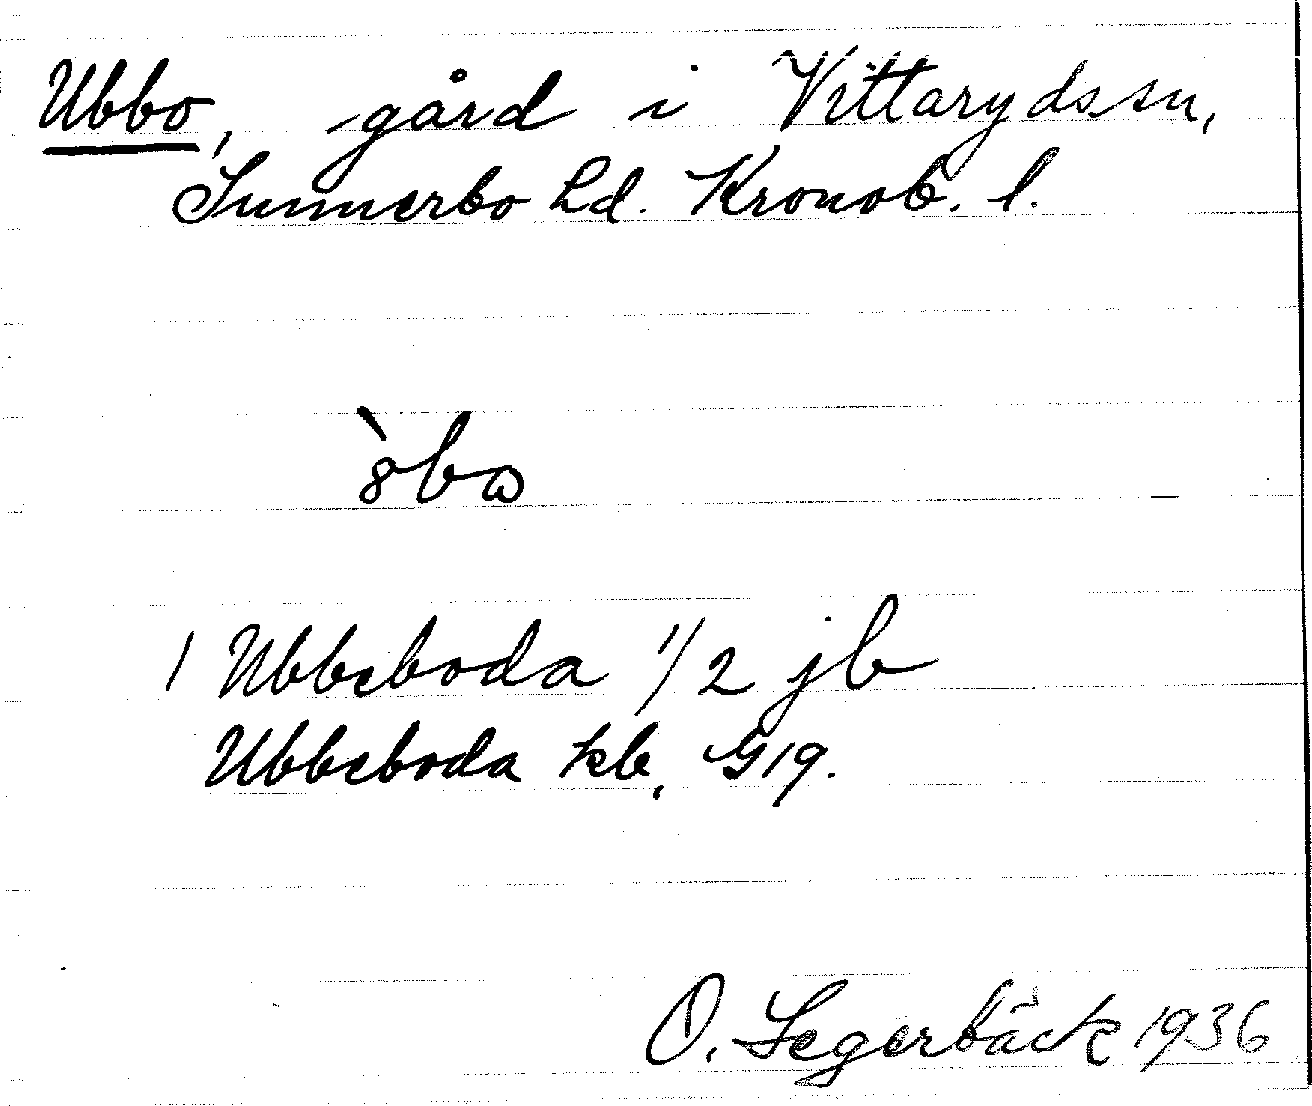 Ubbo, gård i Vittaryds sn,
Sunnerbo hd. Kronob. l.
`8bω
1 Ubbeboda 1/2 jb
Ubbeboda kb, G19.
O. Segerbäck 1936